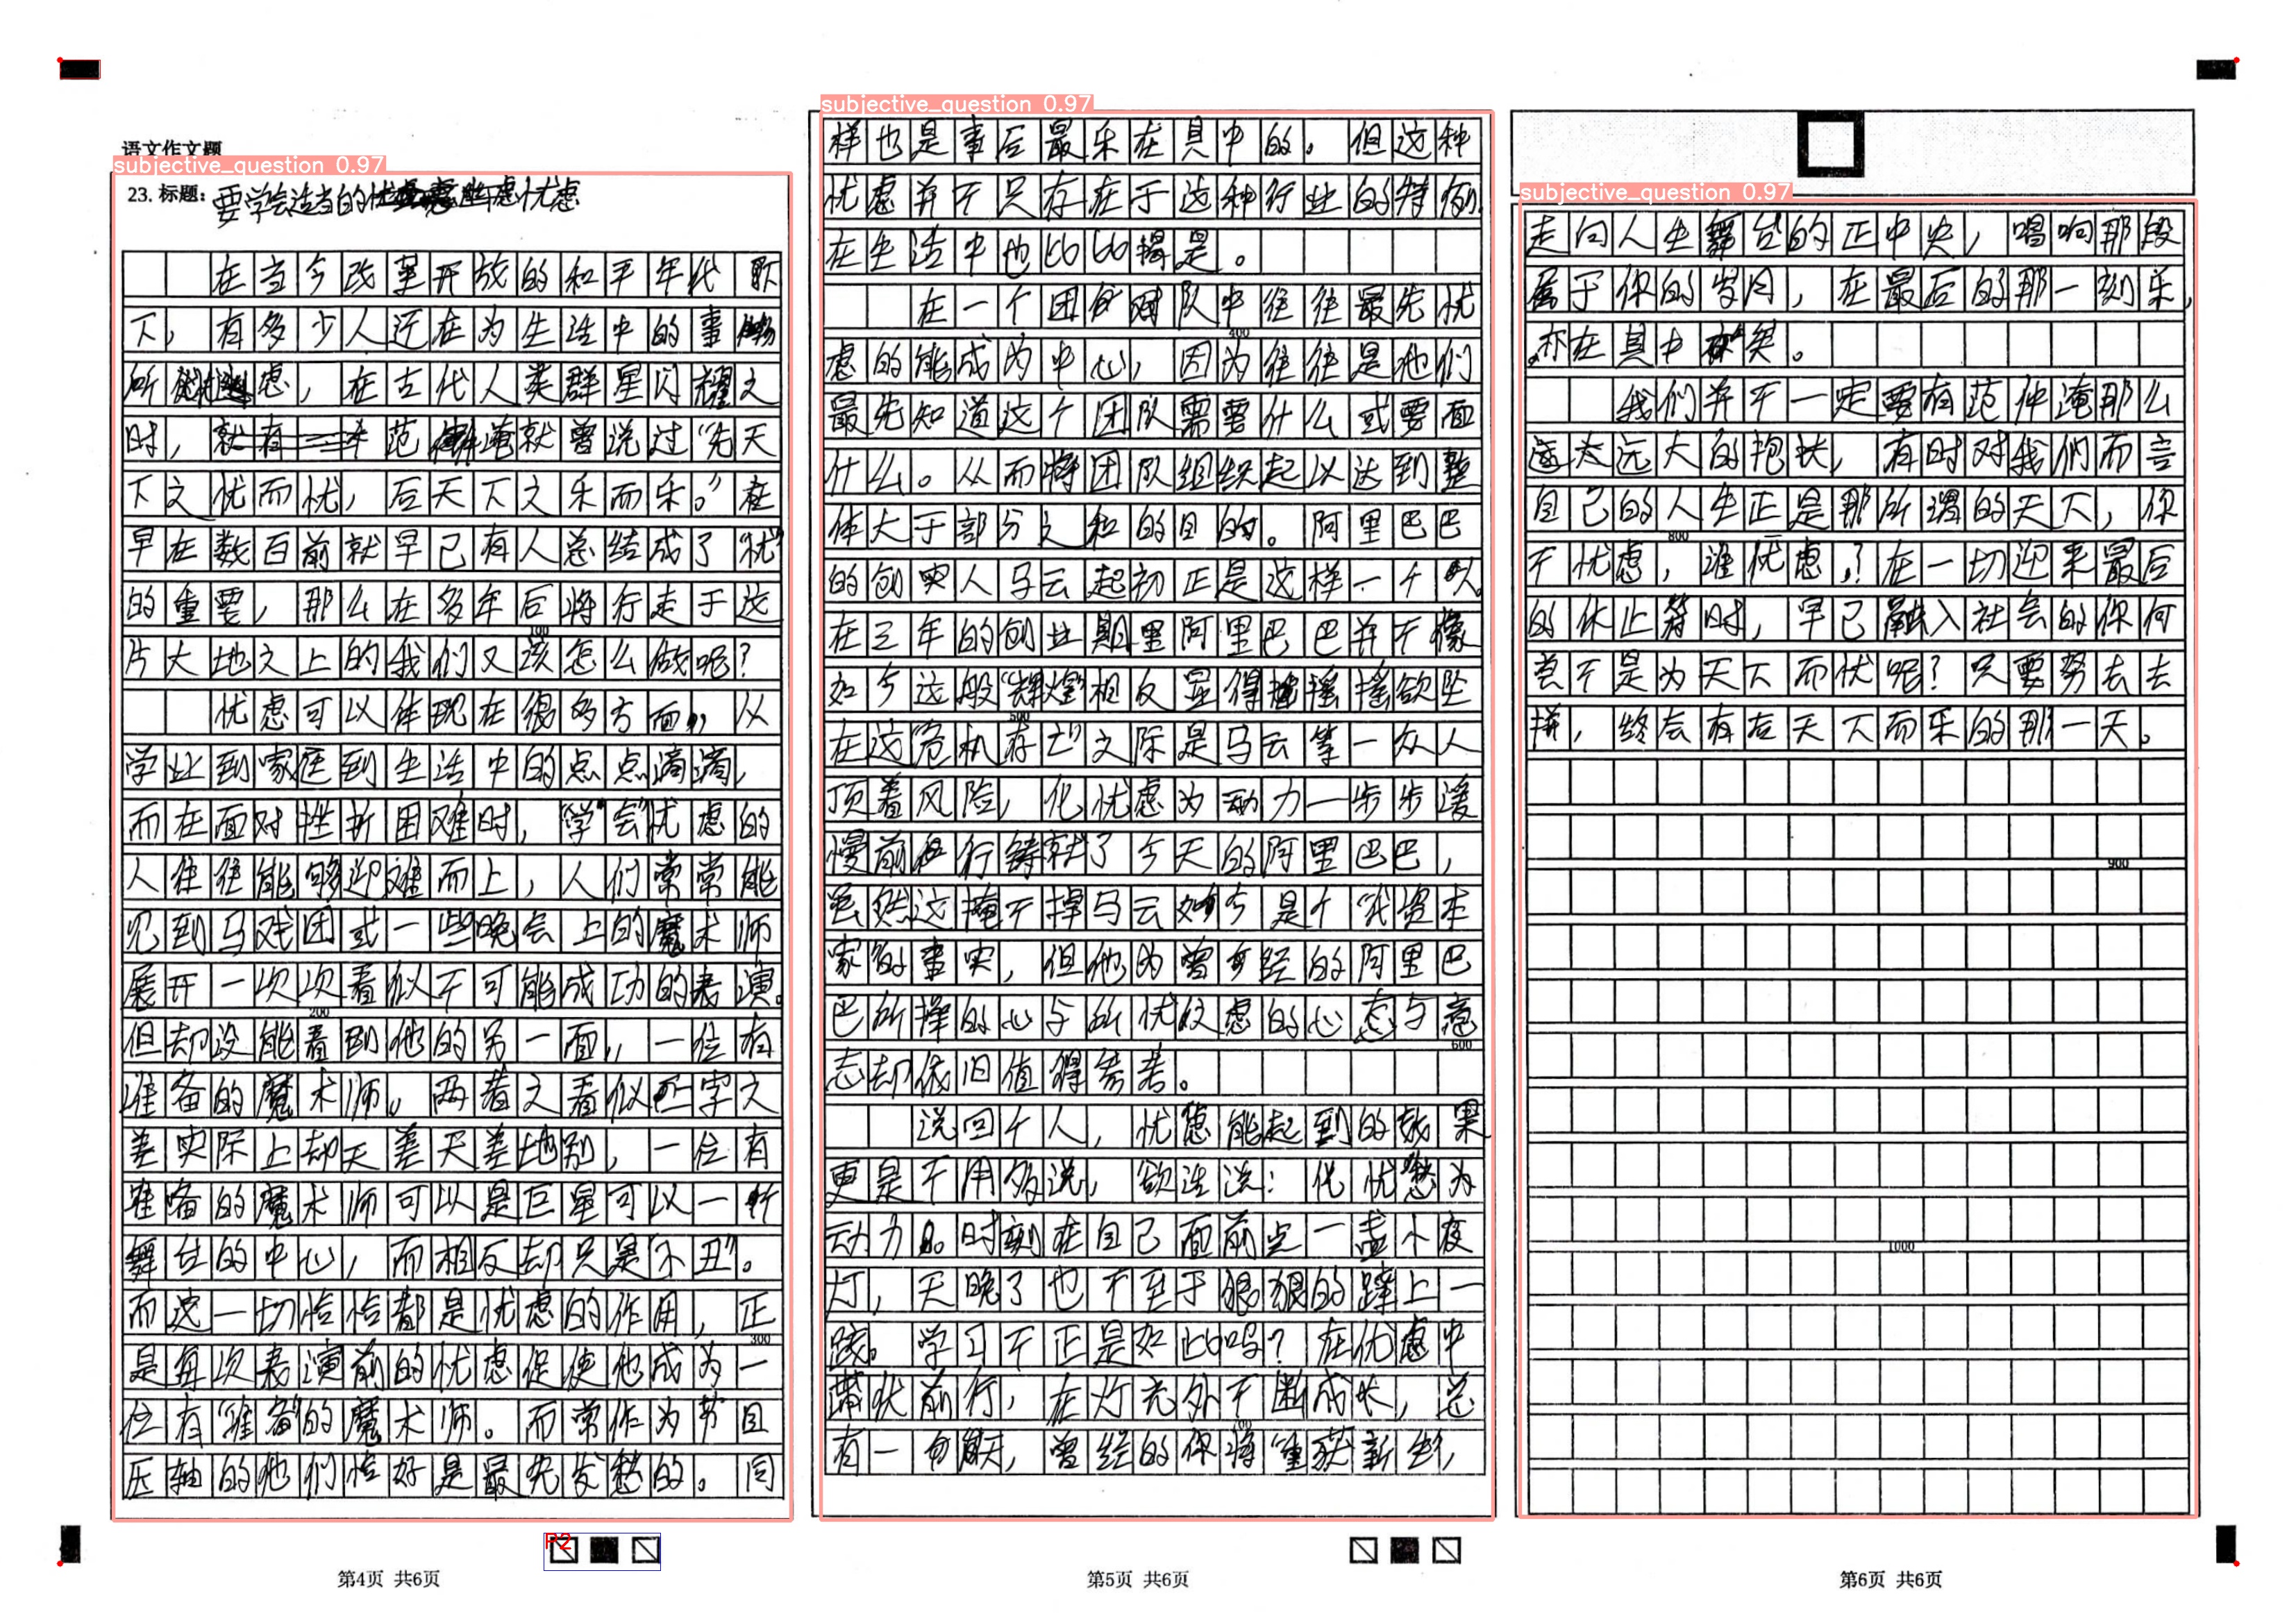 语文作文题
subjective_question 0.97
23. 标题：要学会适当的忧虑
在当今改革开放的和平年代
下，有多少人还在为生活中的事物
所虑，在古代人类群星闪耀之
时，范淹就曾说过“先天
下之忧而忧，后天下之乐而乐。”在
早在数百前就早已有人总结成了“忧”
的重要，那么在多年后将行走于这
100
片大地之上的我们又该怎么做呢？
忧虑可以体现在很多方面，从
学业到家庭到生活中的点点滴滴，
而在面对挫折困难时，“学会”忧虑的
人往往能够迎难而上，人们常常能
见到马戏团或一些晚会上的魔术师
展开一次次看似不可能成功的表演。
200
但却没能看到他的另一面，一位有
准备的魔术师。两者之看似一字之
差实际上却天差天差地别，一位有
准备的魔术师可以是巨星可以一
舞台的中心，而相反却只是“小丑”。
而这一切恰恰都是忧虑的作用，正
300
是每次表演前的忧虑促使他成为一
位有“准备”的魔术师。而常作为节目
压轴的他们恰好是最先发愁的。同
P2
第4页 共6页
subjective_question 0.97
样也是事后最乐在其中的。但这种
忧虑并不只存在于这种行业的特例，
在生活中也比比皆是。
在一个团队中往往最先忧
400
虑的能成为中心，因为往往是他们
最先知道这个团队需要什么或要面
什么。从而将团队组织起以达到整
体大于部分之和的目的。阿里巴巴
的创实人马云起初正是这样一个人。
在三年的创业期里阿里巴巴并不像
如今这般“辉煌”相反显得摇摇欲坠
500
在这“危机存亡”之际是马云等一众人
顶着风险，化忧虑为动力一步步缓
慢前行铸就了今天的阿里巴巴，
虽然这掩不掉马云如今是个资本
家的事实，但他为曾经的阿里巴
巴所择的心与所忧虑的心态与意
600
志却依旧值得参考。
说回个人，忧虑能起到的效果
更是不用多说，欲话说：化忧愁为
动力。时刻在自己面前点一盏小夜
灯，天晚了也不至于狠狠的踩上一
跌。学习不正是如此吗？在优虑中
匍伏前行，在灯光外不断成长，总
700
有一天，曾经的你将“重获新生”，
第5页 共6页
subjective_question 0.97
走向人生舞台的正中央，唱响那段
属于你的岁月，在最后的那一刻乐，
亦在其中矣。
我们并不一定要有范仲淹那么
远大的抱状，有时对我们而言
自己的人生正是那所谓的天下，你
800
不忧虑，谁优虑？在一切迎来最后
的休止符时，早已融入社会的你何
尝不是为天下而忧呢？只要努去去
拼，终会有在天下而乐的那一天。
900
1000
第6页 共6页